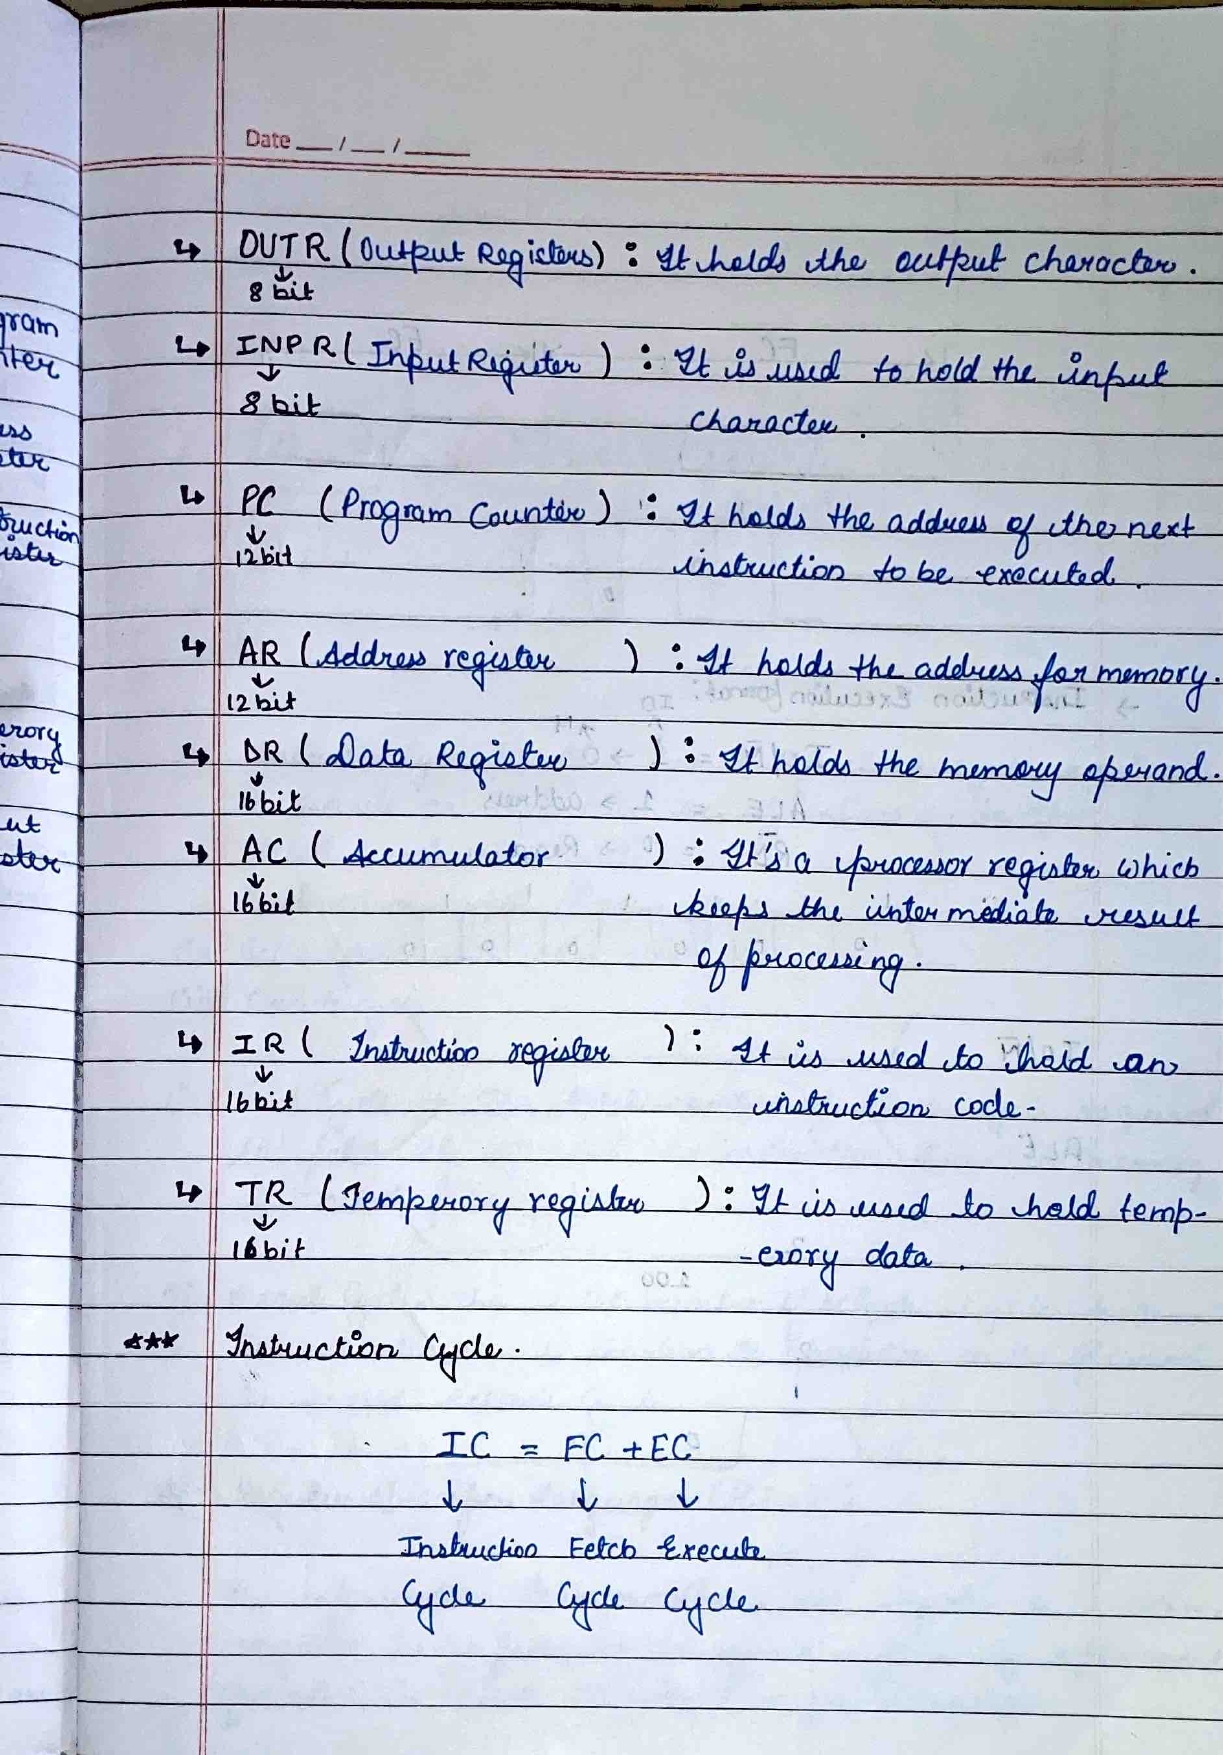 Date __/__/____
↳ OUTR (Output Registers) : It holds the output character.
↓
8 bit
↳ INPR ( Input Register ) : It is used to hold the input
↓
8 bit
character.
↳ PC (Program Counter) : It holds the address of the next
↓
12 bit
instruction to be executed.
↳ AR (Address register ) : It holds the address for memory.
↓
12 bit
↳ DR ( Data Register ) : It holds the memory operand.
↓
16 bit
↳ AC ( Accumulator ) : It's a processor register which
↓
16 bit
keeps the intermediate result
of processing.
↳ IR ( Instruction register ) : It is used to hold an
↓
16 bit
instruction code.
↳ TR (Temperory register ) : It is used to hold temp-
↓
16 bit
-erory data.
*** Instruction Cycle.
IC = FC + EC
↓ ↓ ↓
Instruction Fetch Execute
Cycle Cycle Cycle